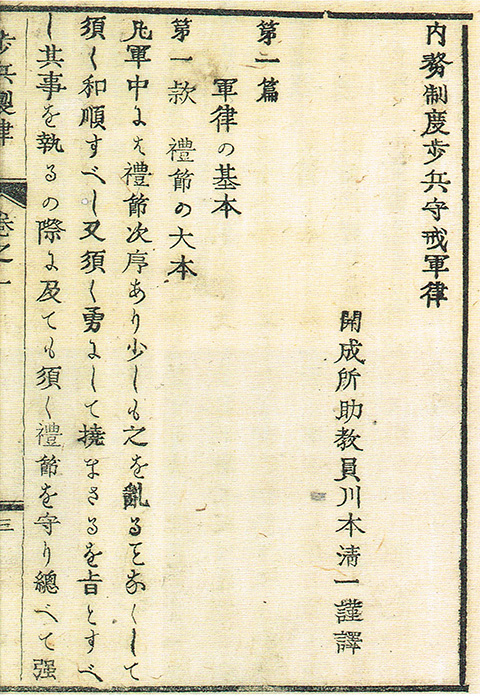 内務制度歩兵守戒軍律
開成所助教員川本清一謹譯
第一篇
軍律の基本
第一款 禮節の大本
凡軍中にハ禮節次序あり少しも之を亂ることなくして
須く和順すべし又須く勇にして撓まさるを旨とすべ
し其事を執るの際に及ても須く禮節を守り總べて强
歩兵製律 卷之一 三